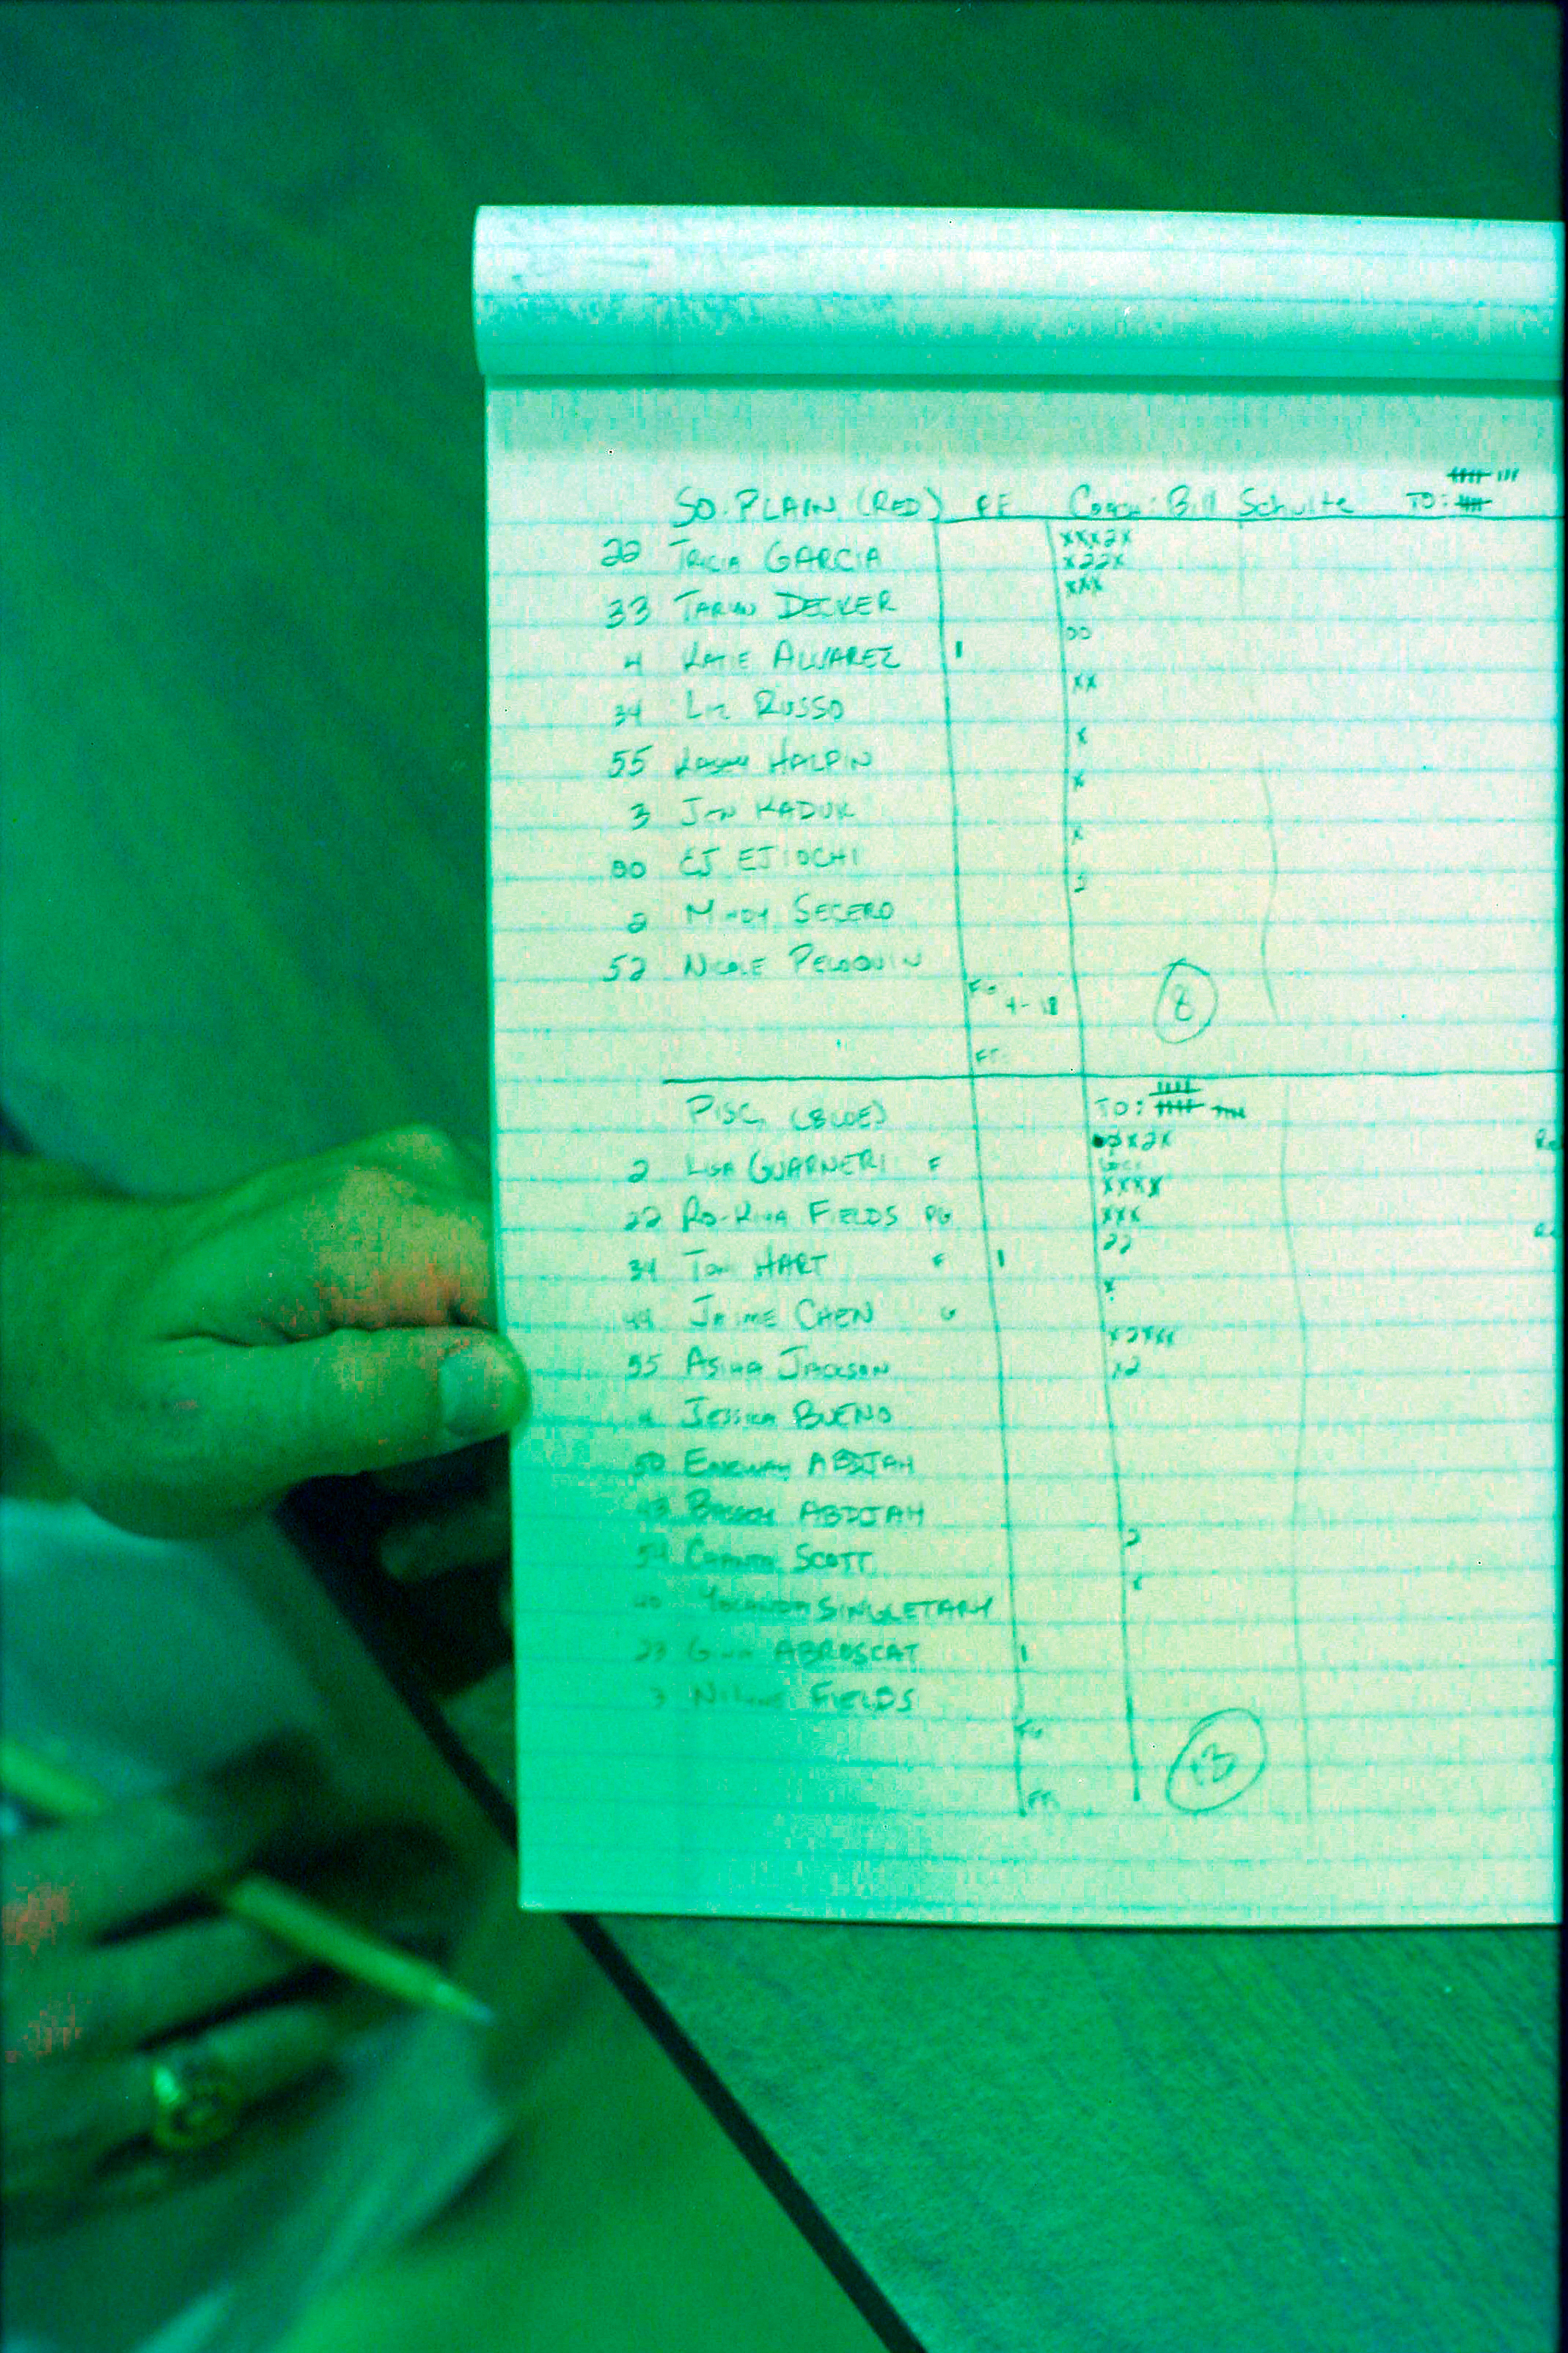 SO. PLAIN (RED) PF Coach: Bill Schulte TO:
22 TRICIA GARCIA xxx2x
x22x
33 DECKER xxx
4 KATIE ALVAREZ 1 00
34 LIZ RUSSO xx
55 HALPIN x
3 JEN KADUK x
00 EJ EJIOCHI x
2 MINDY SEGERO 2
52 NICOLE PELOQUIN
FG 4-18 8
FT
PISC. (BLUE) TO:
2 LISA GUARNERI F x2x
xxxx
22 RO-KIHA FIELDS PG xxx
34 TONI HART F 1 22
44 JAIME CHEN G x
55 ASIHA JACKSON x2xxx
4 JESSICA BUENO x2
50 ABDJAH
43 ABDJAH
54 CHANTA SCOTT 2
40 YOLANDA SINGLETARY x
23 GINA ABROSCAT 1
3 FIELDS
FG 13
FT